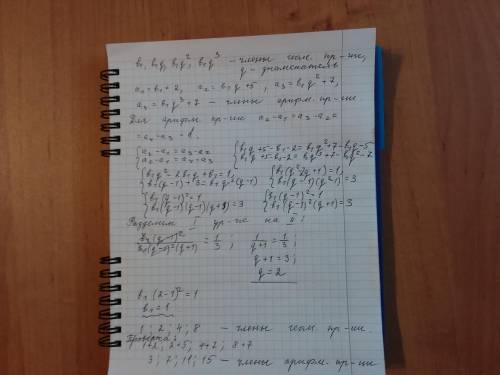 b₁, b₁q, b₁q², b₁q³ - члены геом. пр-ии,
q - знаменатель
a₁ = b₁+2, a₂ = b₁q+5, a₃ = b₁q²+7,
a₄ = b₁q³+7 - члены арифм. пр-ии
Для арифм. пр-ии a₂-a₁ = a₃-a₂ =
= a₄-a₃ = d.
{a₂-a₁ = a₃-a₂ {b₁q+5-b₁-2 = b₁q²+7-b₁q-5
{a₂-a₁ = a₄-a₃ {b₁q+5-b₁-2 = b₁q³+7-b₁q²-7
{b₁q²-2b₁q+b₁ = 1, {b₁(q²-2q+1) = 1,
{b₁(q-1)+3 = b₁q²(q-1) {b₁(q-1)(q²-1) = 3
{b₁(q-1)² = 1 {b₁(q-1)² = 1
{b₁(q-1)(q-1)(q+1) = 3 {b₁(q-1)²(q+1) = 3
Разделим I ур-ие на II:
b₁(q-1)²/b₁(q-1)²(q+1) = 1/3; 1/q+1 = 1/3;
q+1 = 3;
q = 2
b₁(2-1)² = 1
b₁ = 1
1; 2; 4; 8 - члены геом. пр-ии.
Проверка:
1+2; 2+5; 4+7; 8+7
3; 7; 11; 15 - члены арифм. пр-ии